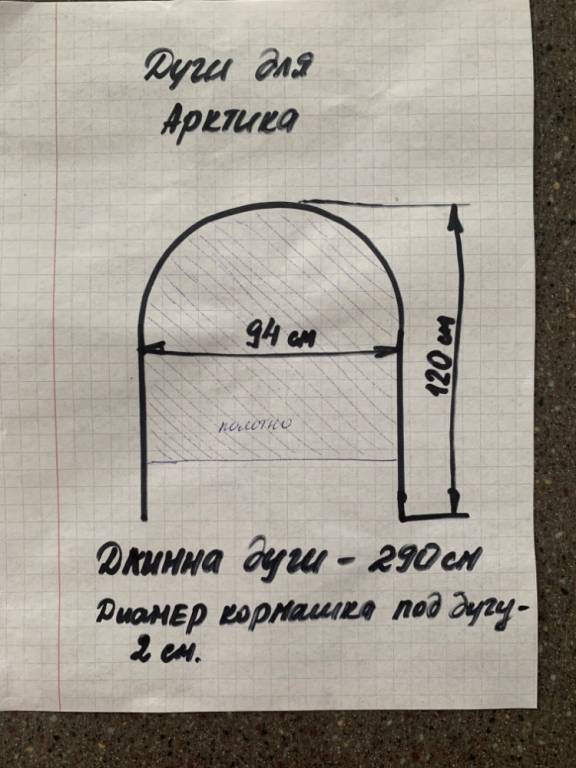 Дуги для
Арктика
94 см
120 см
полотно
Дкинна дуги - 290 см
Диамер кормашка под дугу -
2 см.